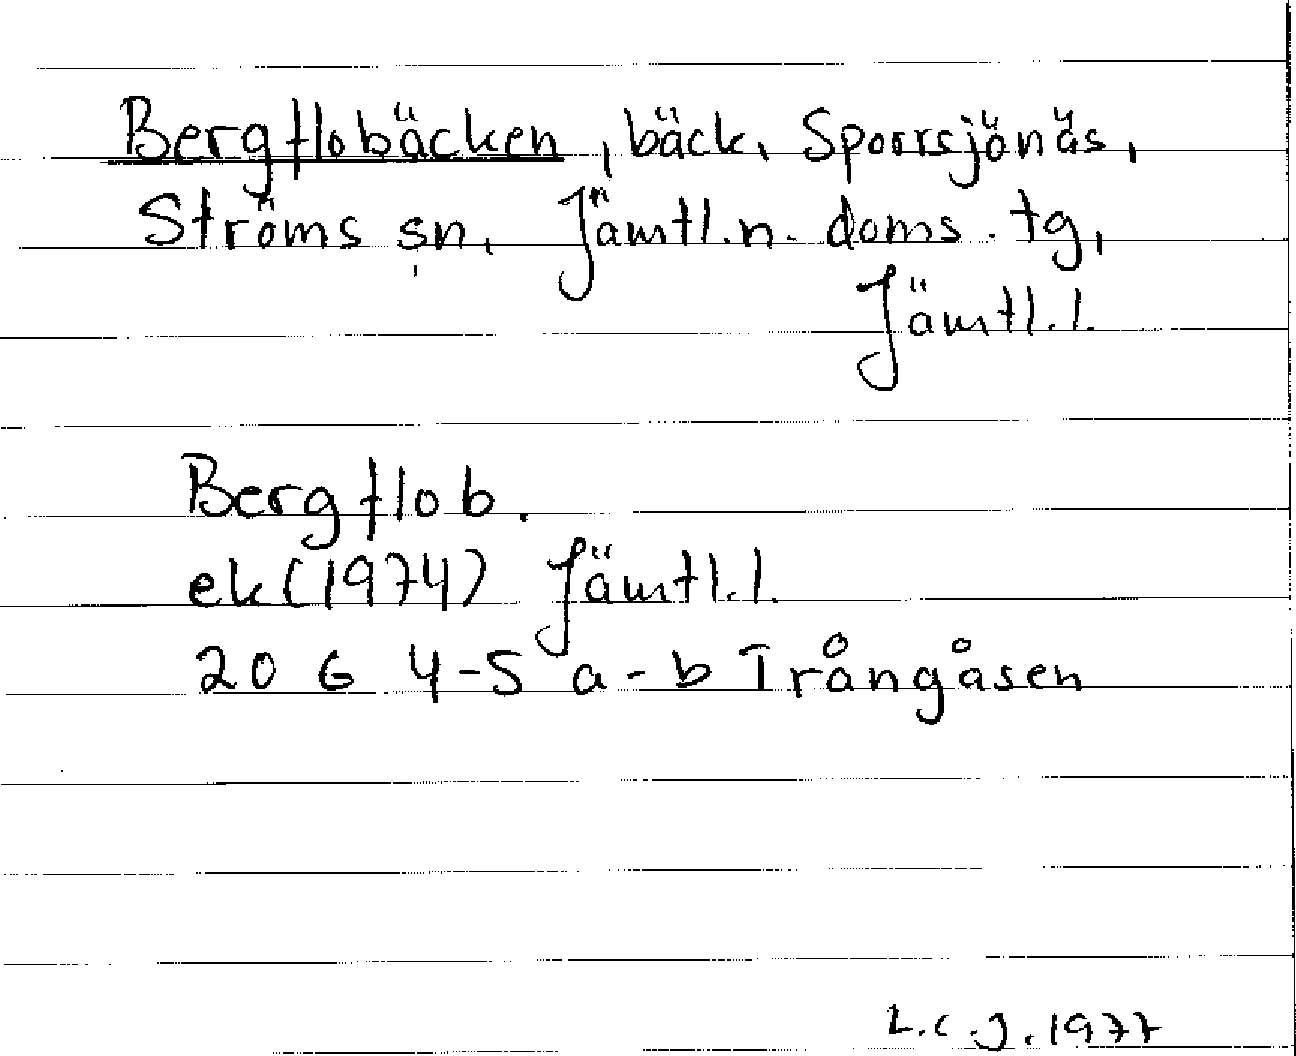 Bergflobäcken, bäck, Sporrsjönäs,
Ströms sn, Jämtl.n. doms. tg,
Jämtl.l.
Bergflob.
ek(1974) Jämtl.l.
20 G 4-5 a-b Trångåsen
L.C.J. 1977